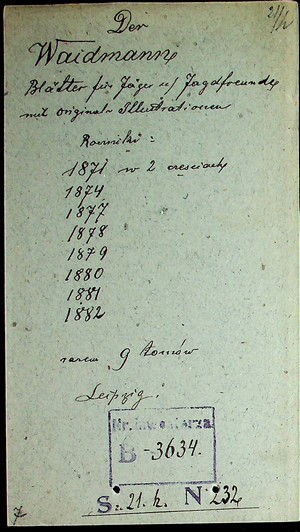 21/h
Der
Waidmann
Blätter für Jäger u/ Jagdfreunde
mit original-Illustrationen
Roczniki:
1871 w 2 częściach
1874
1877
1878
1879
1880
1881
1882
razem 9 tomów
Leipzig.
Nr. inwentarza
B-3634.
S. 21. h. N 232